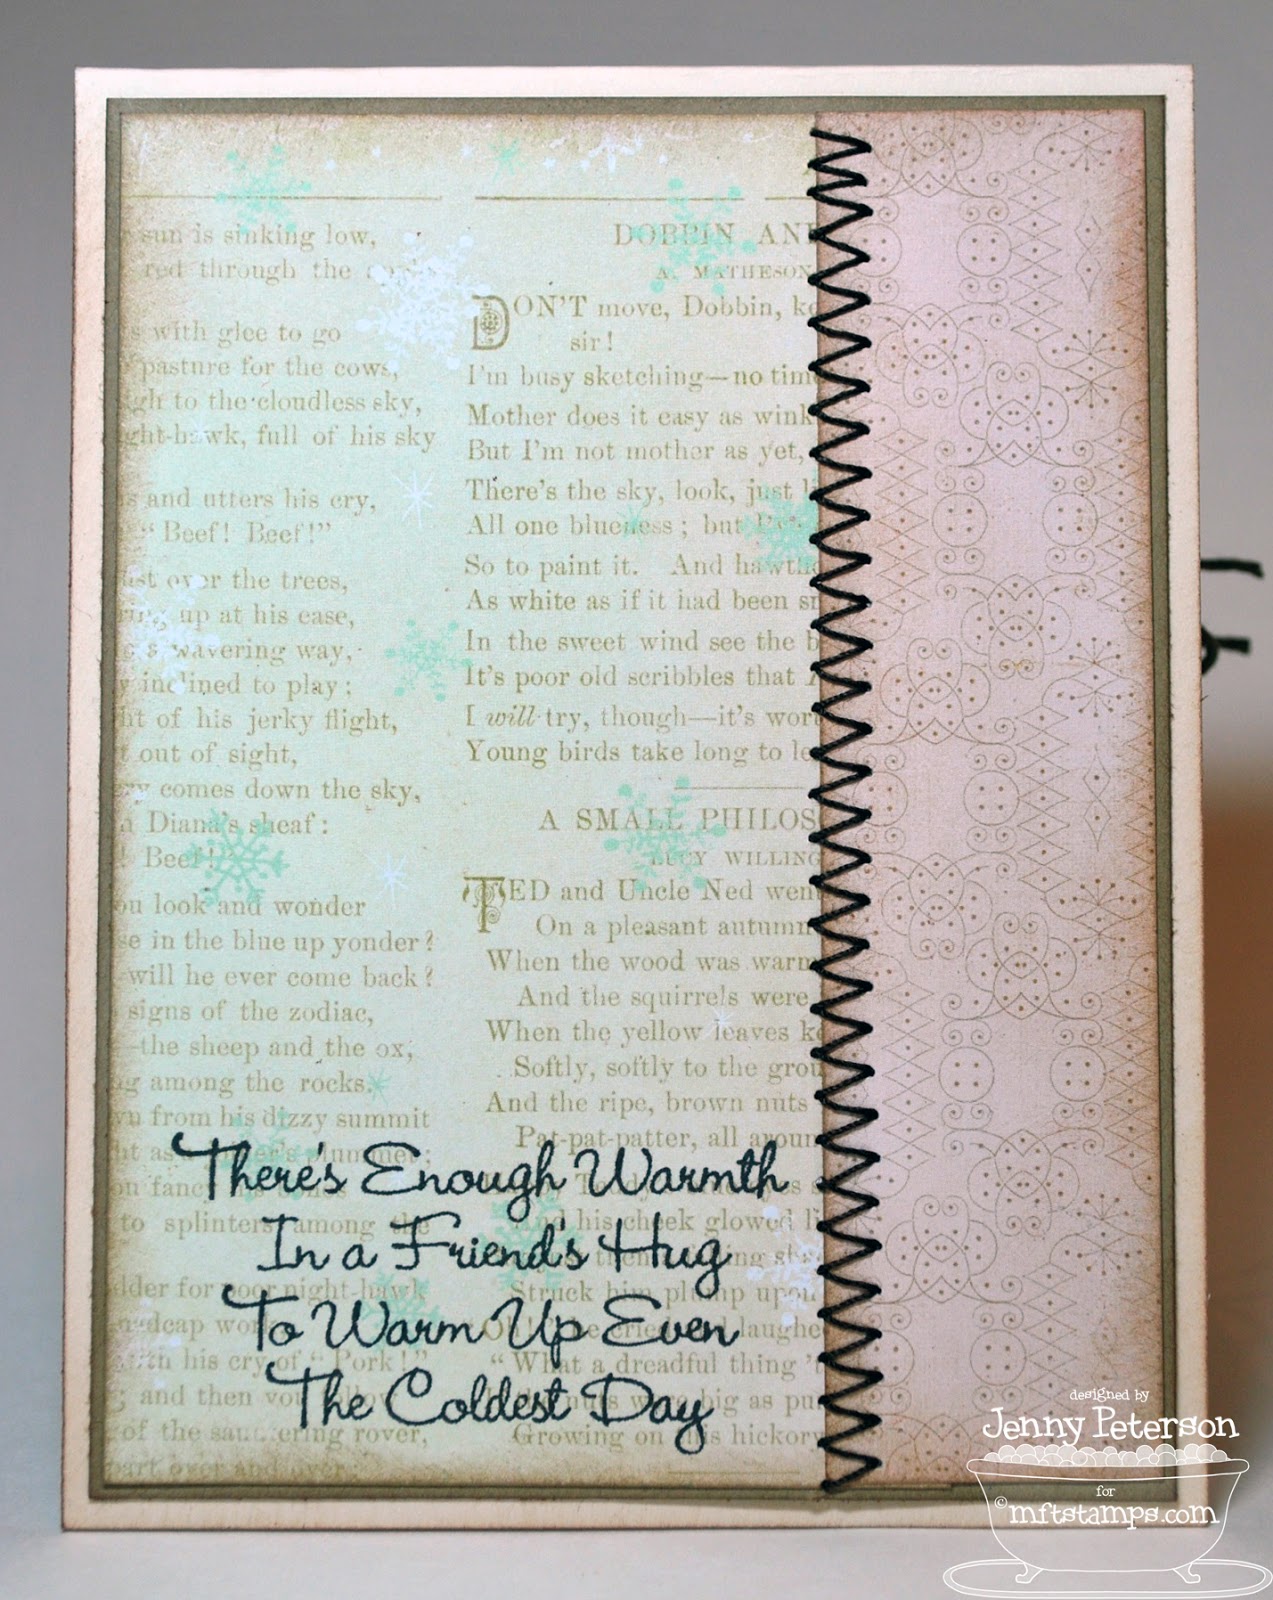 sun is sinking low,
red through the
with glee to go
pasture for the cows,
to the cloudless sky,
ght-hawk, full of his sky
and utters his cry,
"Beef! Beef!"
over the trees,
up at his ease,
wavering way,
inclined to play;
of his jerky flight,
out of sight,
comes down the sky,
Diana's sheaf:
Beef!
you look and wonder
in the blue up yonder?
will he ever come back?
signs of the zodiac,
—the sheep and the ox,
among the rocks.
from his dizzy summit
plummet;
to splinters among the
for poor night-hawk
with his cry of "Pork!"
and then you
of the sauntering rover,
over and over
DOBBIN AND
A. MATHESON
DON'T move, Dobbin, ke
sir!
I'm busy sketching—no time
Mother does it easy as wink
But I'm not mother as yet,
There's the sky, look, just li
All one blueness; but
So to paint it. And hawtho
As white as if it had been sn
In the sweet wind see the b
It's poor old scribbles that I
I will try, though—it's wort
Young birds take long to le
A SMALL PHILOS
LUCY WILLING
TED and Uncle Ned went
On a pleasant autumn
When the wood was warm
And the squirrels were
When the yellow leaves ke
Softly, softly to the grou
And the ripe, brown nuts
Pat-pat-patter, all aroun
And his cheek glowed li
Struck him plump upon
laughe
"What a dreadful thing
big as pu
Growing on this hickory
There's Enough Warmth
In a Friend's Hug
To Warm Up Even
The Coldest Day
designed by
Jenny Peterson
for
©mftstamps.com